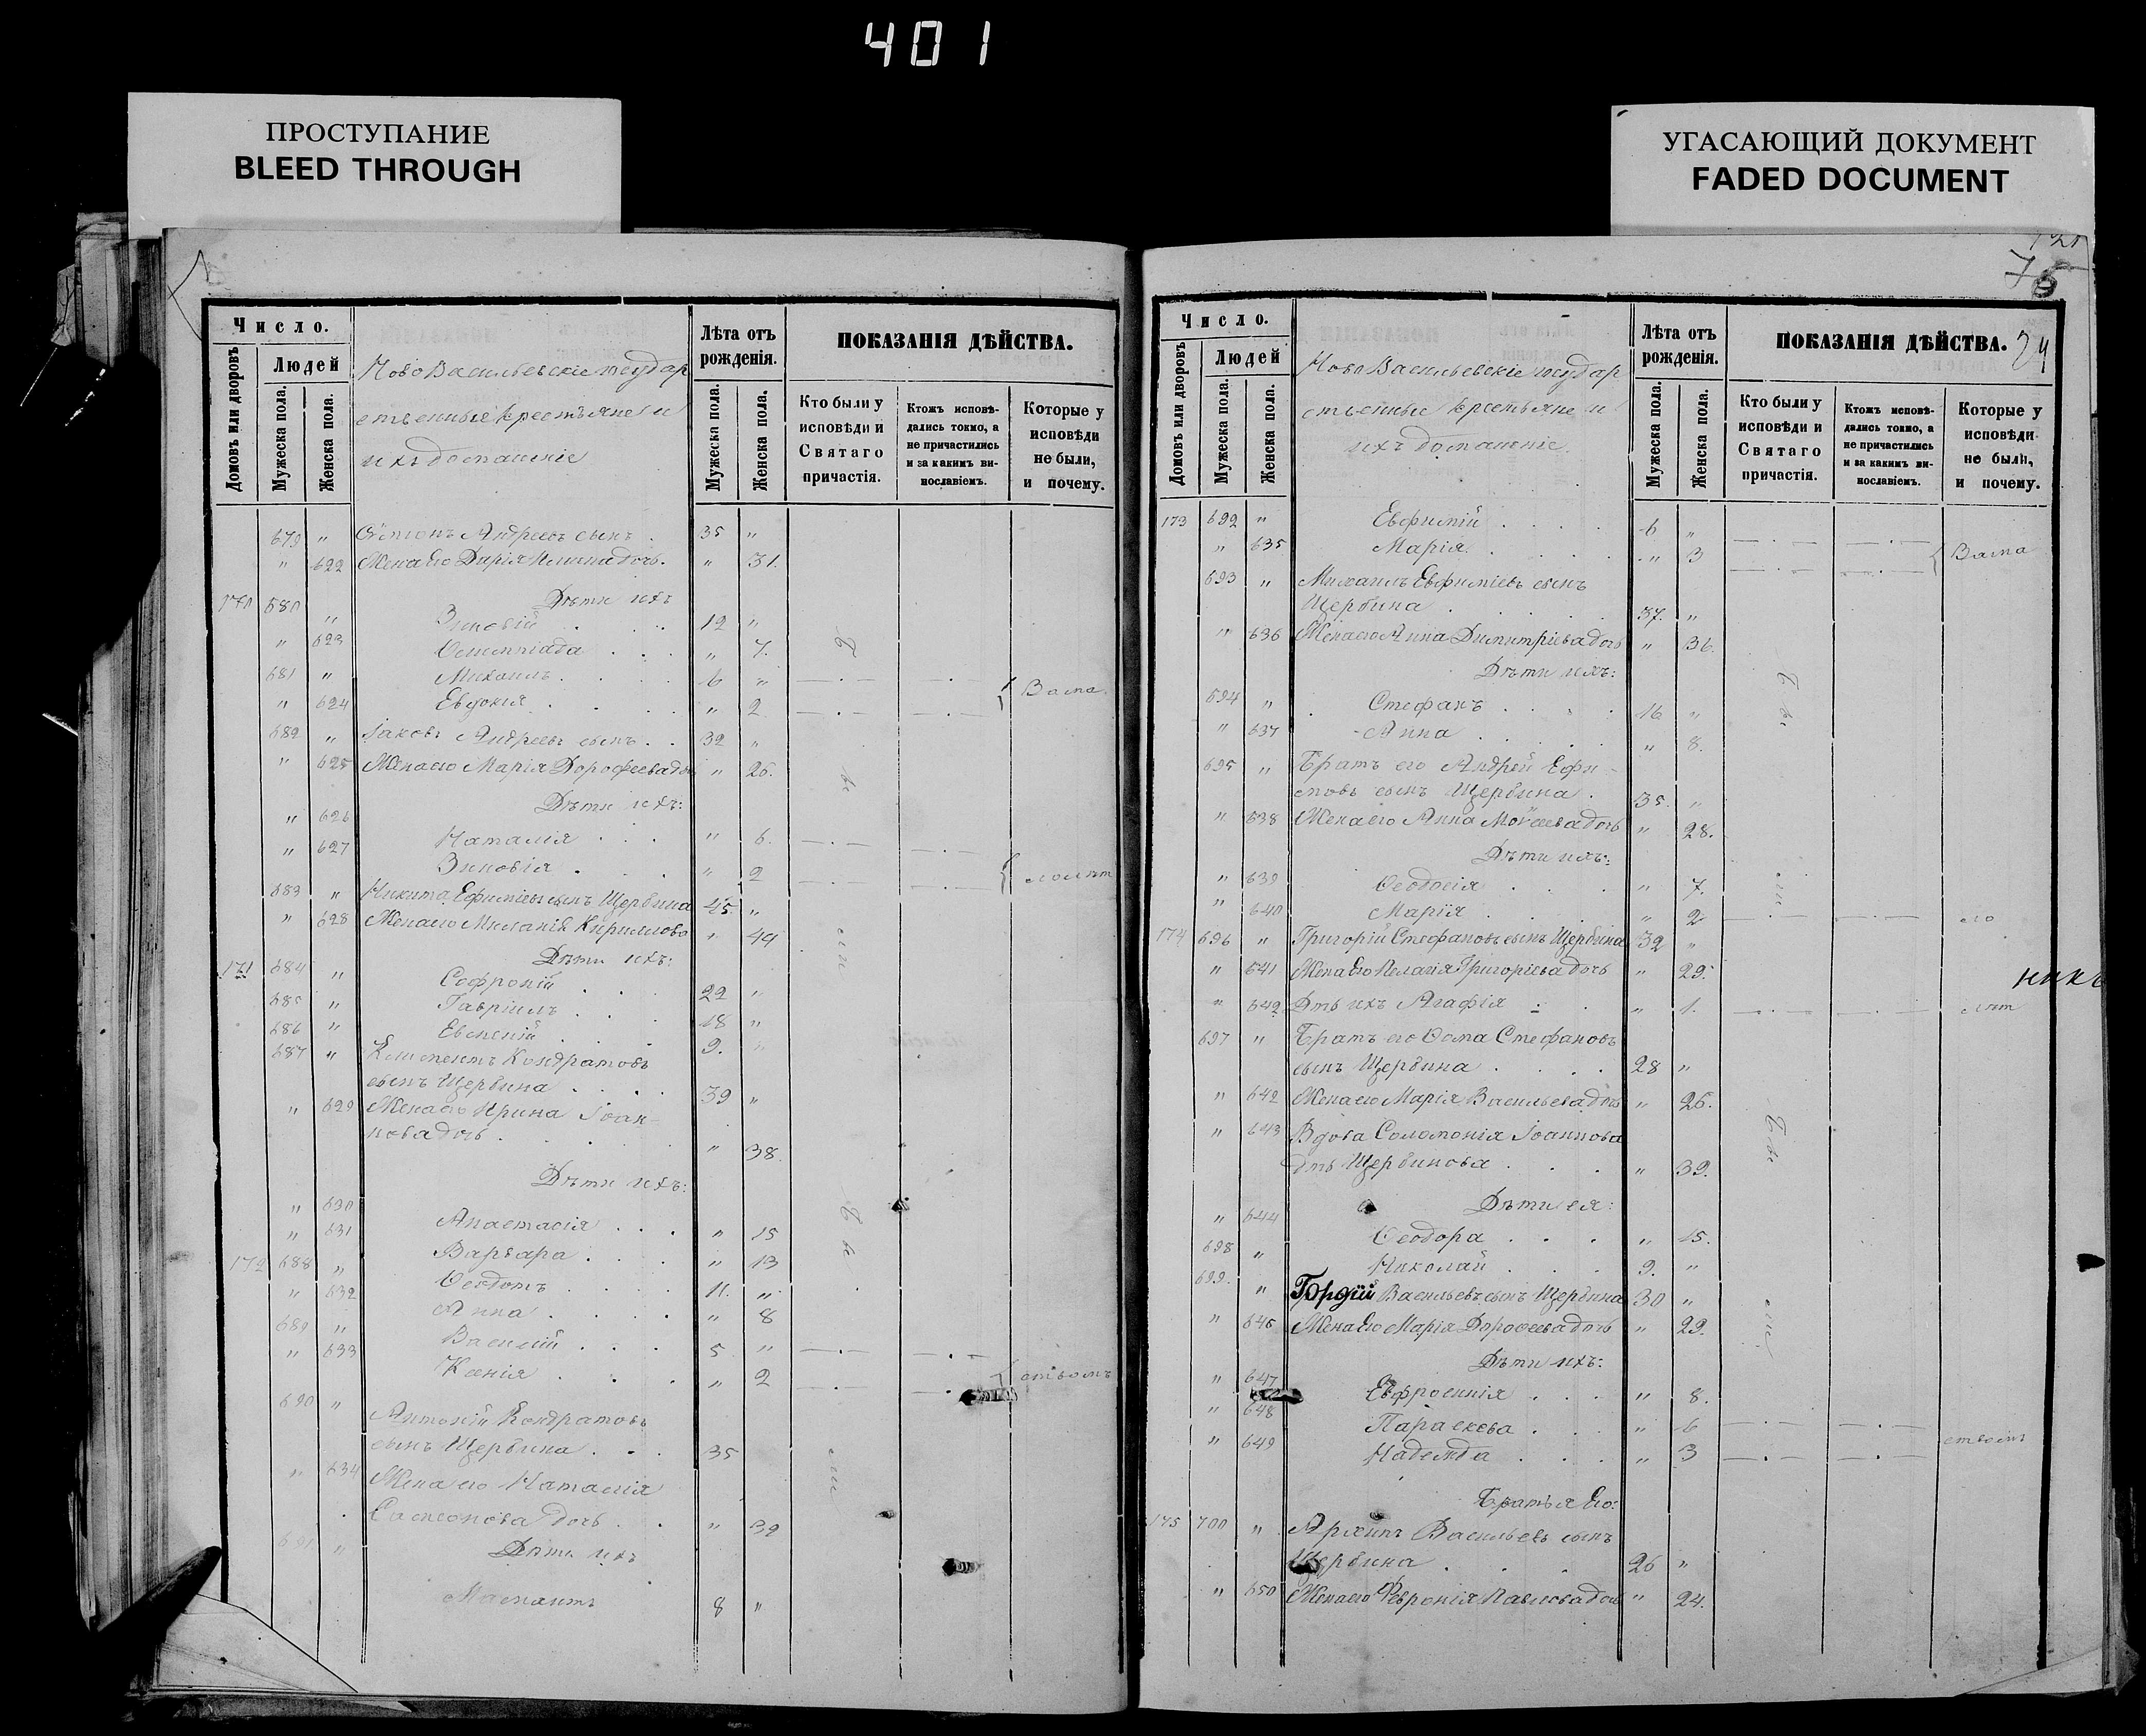 401
ПРОСТУПАНИЕ
BLEED THROUGH
УГАСАЮЩИЙ ДОКУМЕНТ
FADED DOCUMENT
Число.
Домовъ или дворовъ
Людей
Мужеска пола.
Женска пола.
НовоВасильевскіе государ
ственные крестьяне и
ихъ домашніе
Лѣта отъ рожденія.
Мужеска пола.
Женска пола.
ПОКАЗАНІЯ ДѢЙСТВА.
Кто были у исповѣди и Святаго причастія.
Ктожъ исповѣдались токмо, а не причастились и за какимъ винословіемъ.
Которые у исповѣди не были, и почему.
679 " Андреевъ сынъ . 35 "
" 622 Жена Его Дарія дочь. " 31.
Дѣти ихъ
170 680 " Зиновій 12 "
" 623 Олимпіада " 7.
681 " Михаилъ 6 "
" 624 Евдокія " 2
682 " Іаковъ Андреевъ сынъ . . 32 "
" 625 Жена его Марія Дорофеева доч " 26.
Дѣти ихъ:
" 626 Наталія " 6.
" 627 Зиновія " 2
683 " Никита Ефиміевъ сынъ Щербина 45. "
" 628 Жена его Меланія Кириллова " 44
Дѣти ихъ:
171 684 " Софроній 22 "
685 " Гавріилъ 18 "
686 " Евменій 9. "
687 " Климентъ Кондратовъ
сынъ Щербина . . . . 39 "
" 629 Жена его Ирина Іоан-
нова дочь . " 38.
Дѣти ихъ:
" 630 Анастасія " 15
" 631 Варвара " 13
172 688 " Ѳеодотъ 11. "
" 632 Анна " 8
689 " Василій 5 "
" 633 Ксенія " 2
690 " Антоній Кондратовъ
сынъ Щербина . . . 35
" 634 Жена его Наталія
Самсонова дочь . . " 32
Дѣти ихъ
8 "
75
24
Число.
Домовъ или дворовъ
Людей
Мужеска пола.
Женска пола.
НовоВасильевскіе государ
ственные крестьяне и
ихъ домашніе.
Лѣта отъ рожденія.
Мужеска пола.
Женска пола.
ПОКАЗАНІЯ ДѢЙСТВА.
Кто были у исповѣди и Святаго причастія.
Ктожъ исповѣдались токмо, а не причастились и за какимъ винословіемъ.
Которые у исповѣди не были, и почему.
173 692 " Евфимій 6 "
" 635 Марія " 3
693 " Михаилъ Евфиміевъ сынъ
Щербина 37. "
" 636 Жена его Анна Димитріева дочь " 36.
Дѣти ихъ:
694 " Стефанъ 16 "
" 637 Анна " 8.
695 " Братъ его Андрей Ефи-
мовъ сынъ Щербина . 35. "
" 638 Жена его Анна Моѵсеева дочь " 28.
Дѣти ихъ:
" 639 Ѳеодосія " 7.
" 640 Марія " 2
174 696 " Григорій Стефановъ сынъ Щербина 32 "
" 641 Жена Его Пелагія Григоріева дочь " 29.
" 642 Дѣть ихъ Агафія " 1.
697 " Братъ его Ѳома Стефановъ
сынъ Щербина 28 "
" 642 Жена его Марія Васильева дочь " 26.
" 643 Вдова Соломонія Іоаннова
дчь Щербинова " 39.
Дѣти ея:
" 644 Ѳеодора " 15.
698 " Николай 9. "
699. " Гордій Васильевъ сынъ Щербина 30 "
" 646 Жена Его Марія Дорофеева дочь " 29.
Дѣти ихъ:
" 647 Евфросинія " 8.
" 648 Параскева " 6
" 649 Надежда " 3
Братья Его:
175 700 " Архипъ Васильевъ сынъ
Щербина 26 "
" 650 Жена его Февронія Павлова доч " 24.